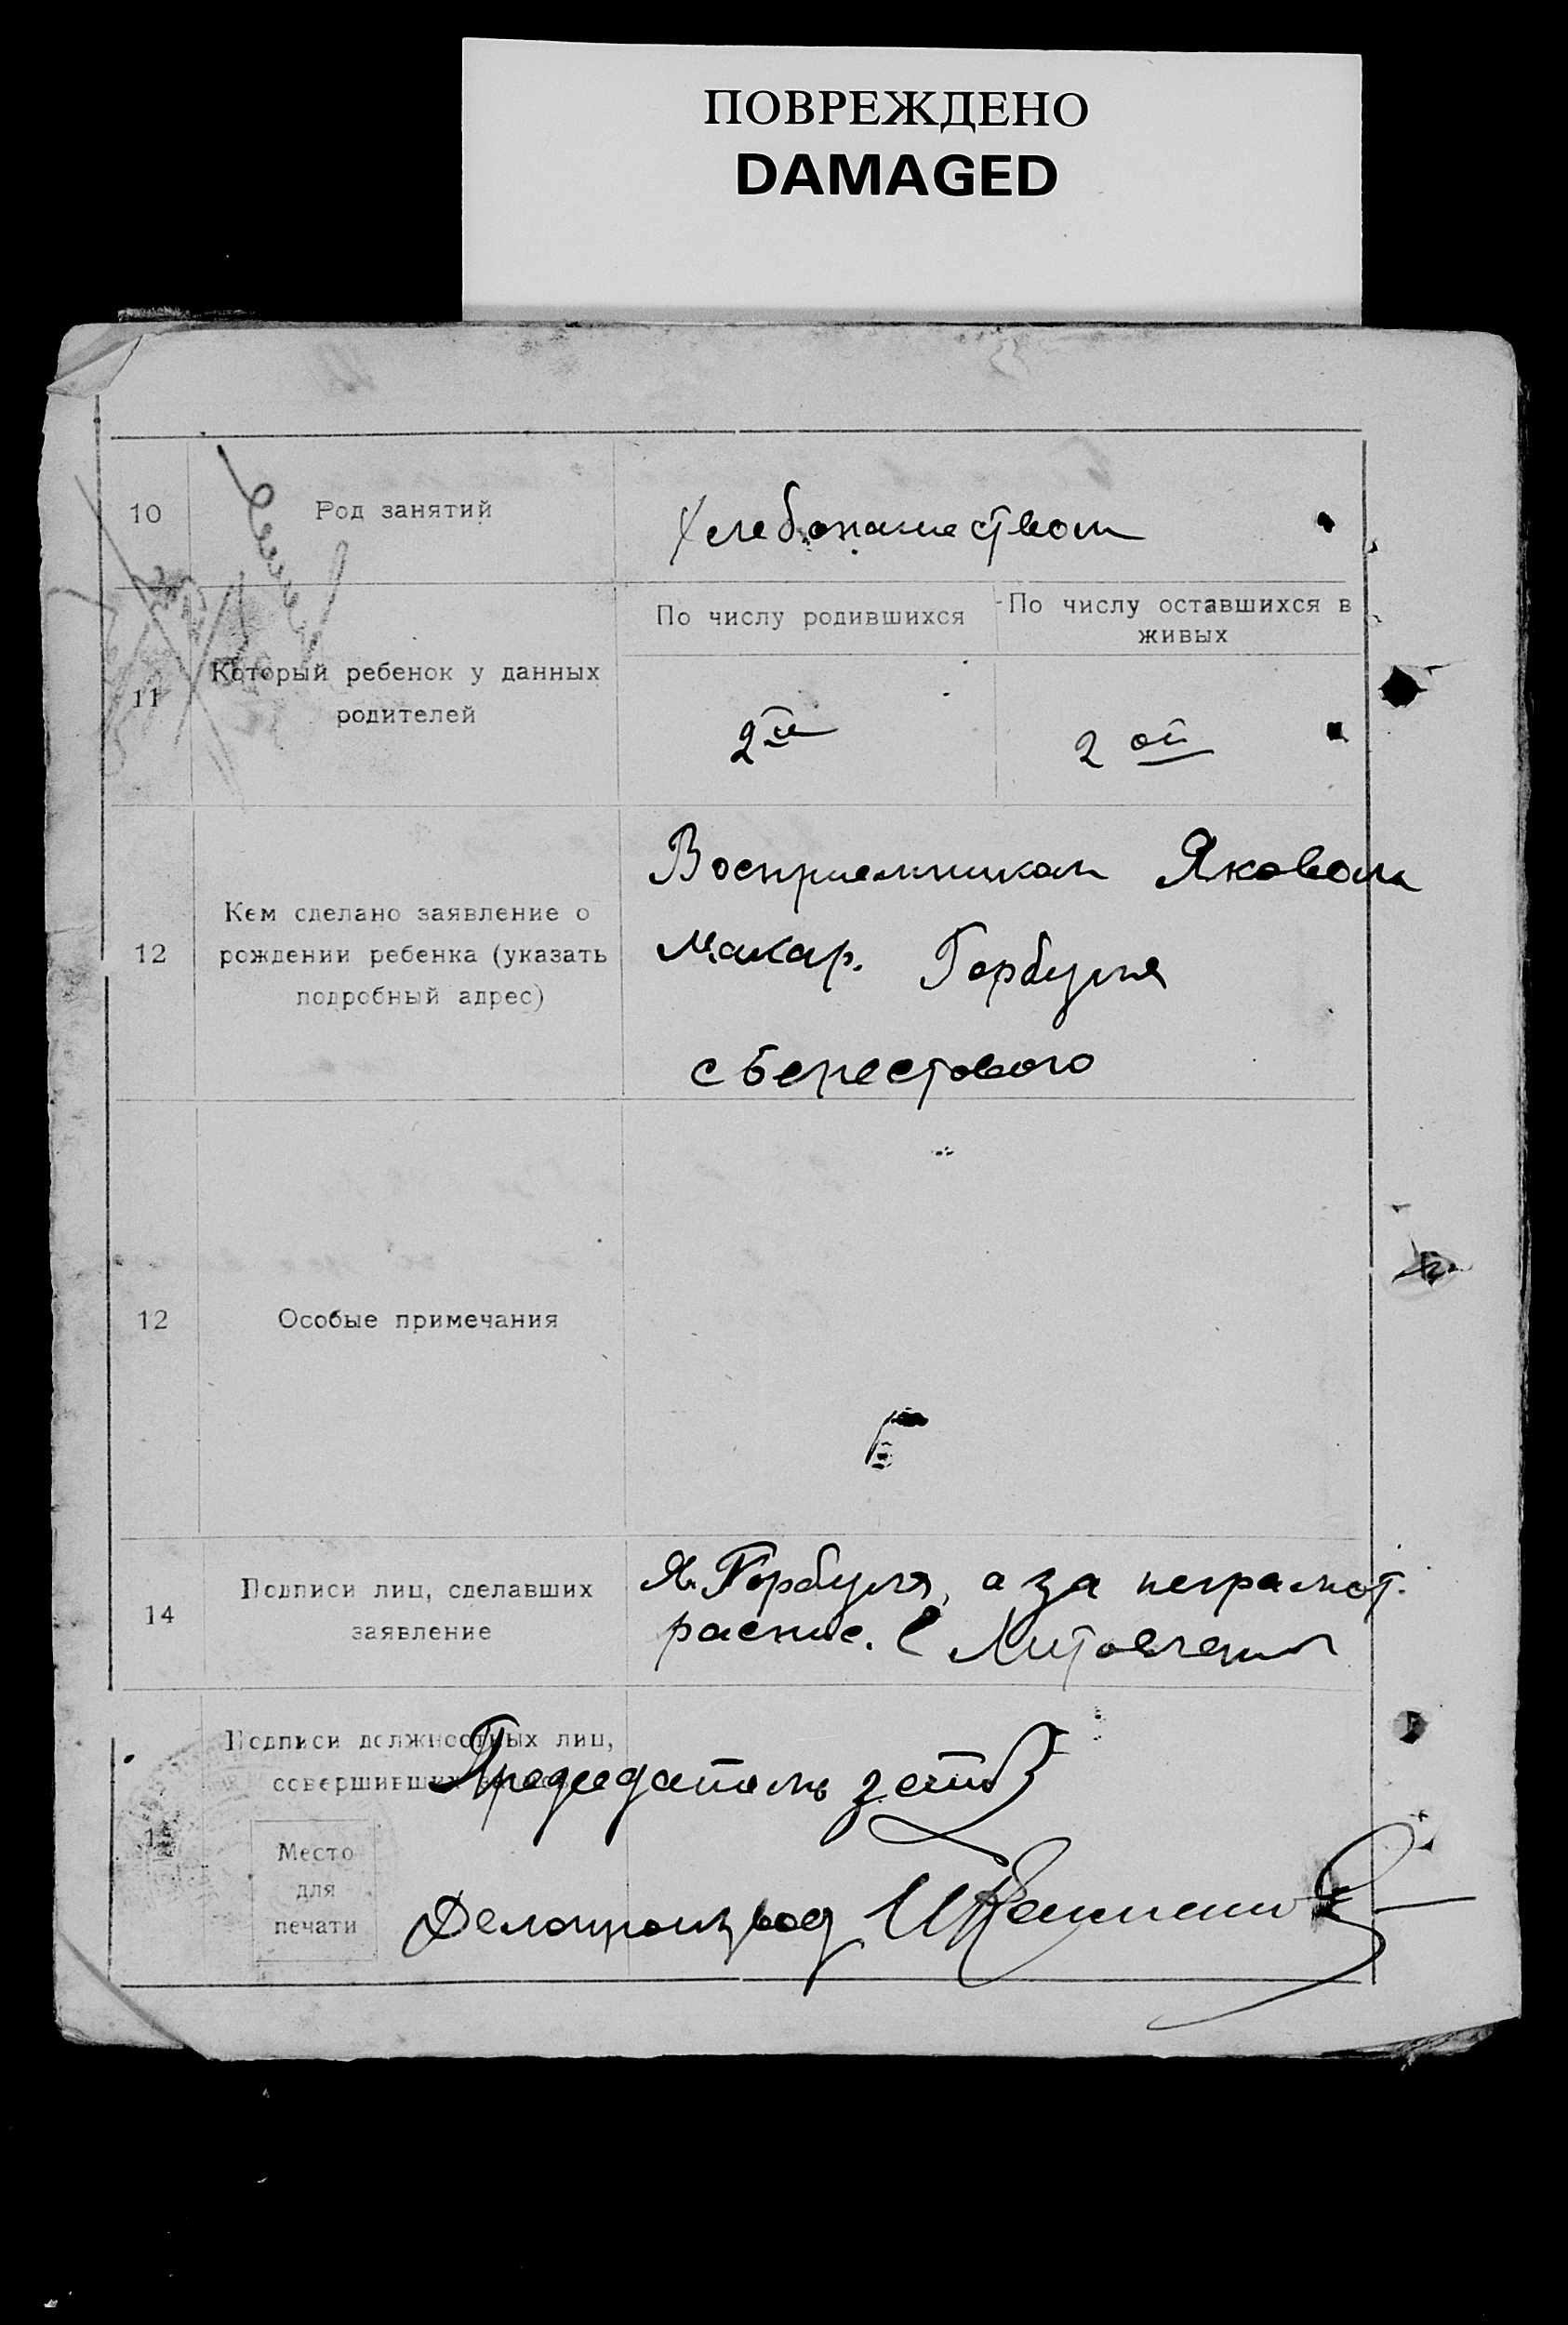 ПОВРЕЖДЕНО
DAMAGED
10 Род занятий Хлебопашеством
11 Который ребенок у данных родителей
По числу родившихся
По числу оставшихся в живых
2й
2ой
12 Кем сделано заявление о рождении ребенка (указать подробный адрес)
Восприемником Яковом
Макар. Горбуля
с Берестового
12 Особые примечания
14 Подписи лиц, сделавших заявление
Я. Горбуля, а за неграмот.
распис.
15 Подписи должностных лиц, совершивших
Председатель
Место
для
печати
Делопроизвод